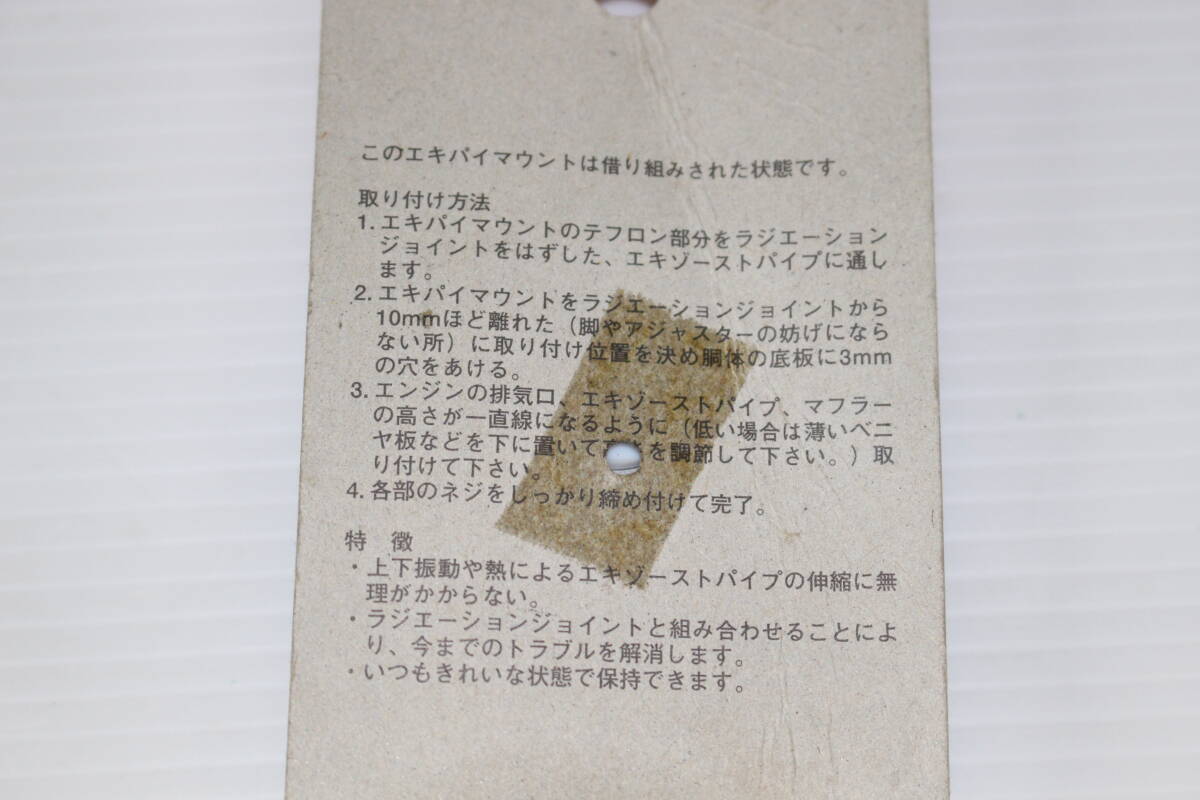 このエキパイマウントは借り組みされた状態です。
取り付け方法
1. エキパイマウントのテフロン部分をラジエーション
ジョイントをはずした、エキゾーストパイプに通し
ます。
2. エキパイマウントをラジエーションジョイントから
10mmほど離れた（脚やアジャスターの妨げになら
ない所）に取り付け位置を決め胴体の底板に3mm
の穴をあける。
3. エンジンの排気口、エキゾーストパイプ、マフラー
の高さが一直線になるように（低い場合は薄いベニ
ヤ板などを下に置いて高さを調節して下さい。）取
り付けて下さい。
4. 各部のネジをしっかり締め付けて完了。
特　徴
・上下振動や熱によるエキゾーストパイプの伸縮に無
理がかからない。
・ラジエーションジョイントと組み合わせることによ
り、今までのトラブルを解消します。
・いつもきれいな状態で保持できます。